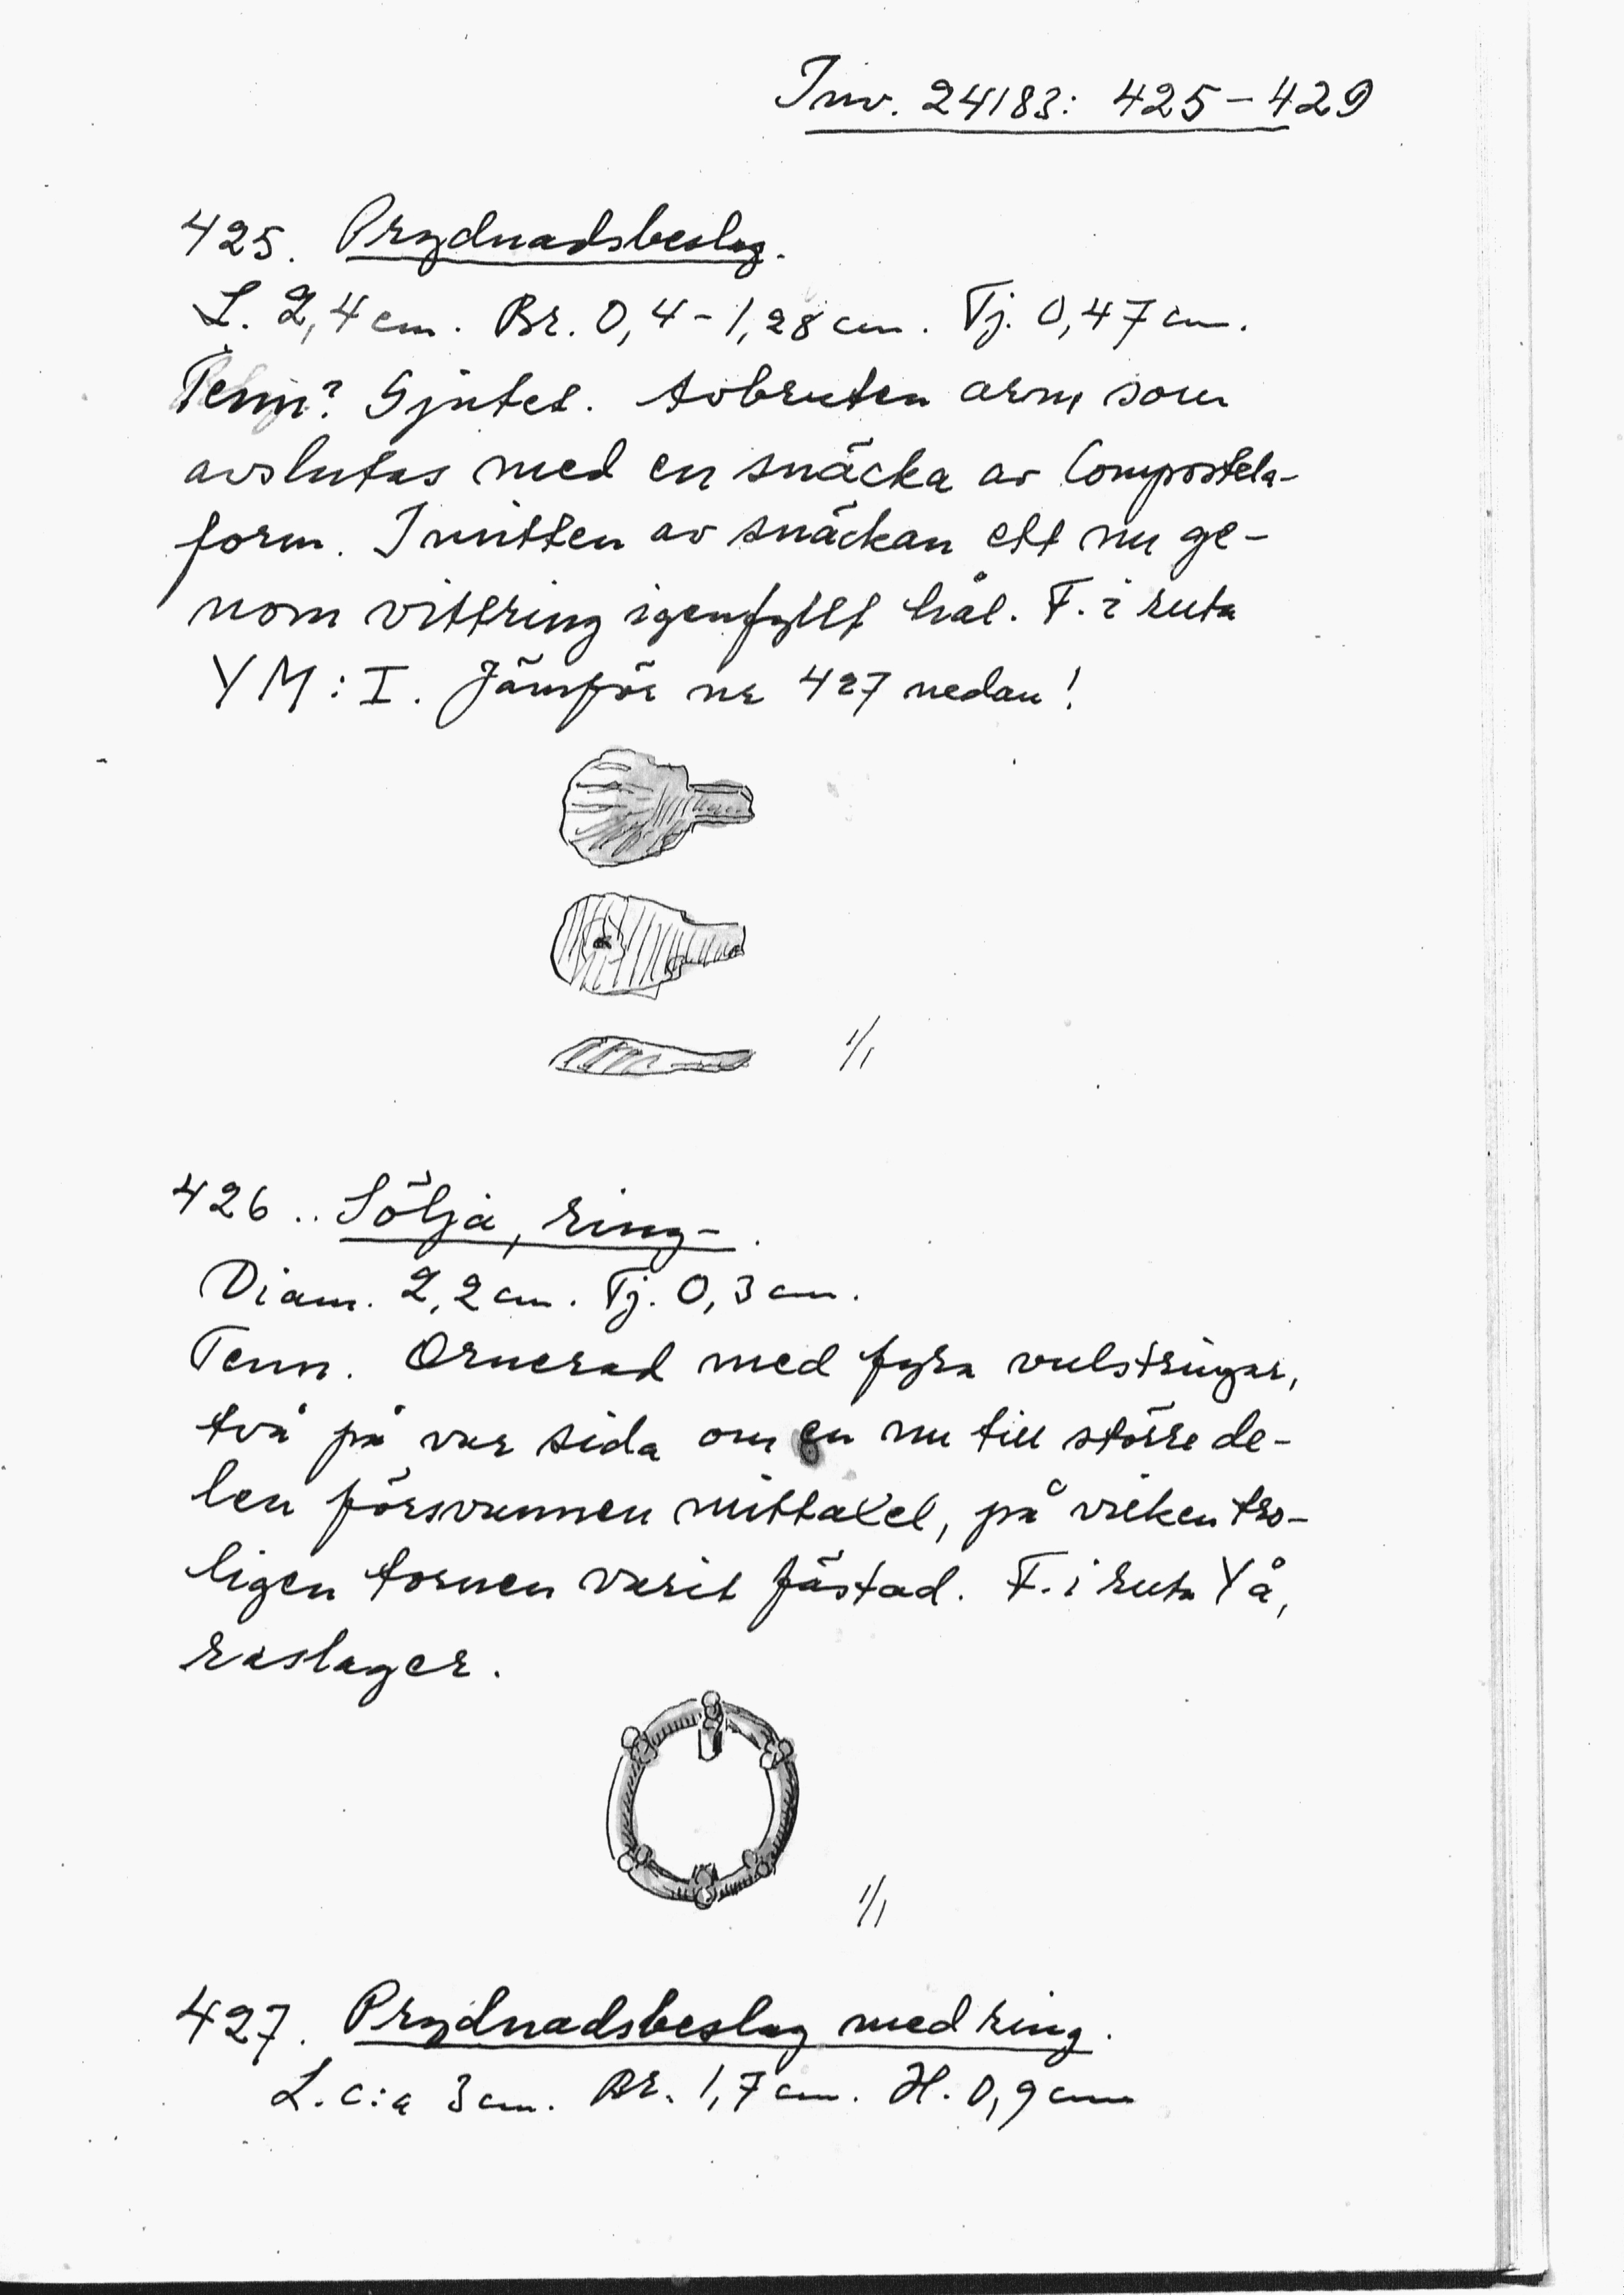 Inv. 24183: 425-429
425. Prydnadsbeslag.
L. 2,4 cm. Br. 0,4-1,28 cm. Tj. 0,47 cm.
Tenn? Gjutet. Avbruten arm som
avslutas med en snäcka av Compostela-
form. I mitten av snäckan ett nu ge-
nom vittring igenfyllt hål. F. i ruta
YM: I. Jämför nr 427 nedan!
1/1
426.. Sölja, ring-.
Diam. 2,2 cm. Tj. 0,3 cm.
Tenn. Ornerad med fyra vulstringar,
två på var sida om en nu till större de-
len försvunnen mittaxel, på vilken tro-
ligen tornen varit fästad. F. i ruta Yå,
raslager.
1/1
427. Prydnadsbeslag med ring.
L. c:a 3 cm. Br. 1,7 cm. H. 0,9 cm